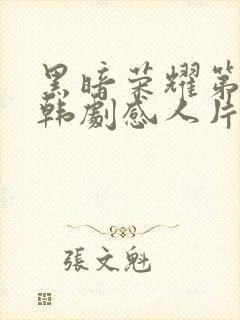 黑暗荣耀第
韩劇感人片
張文魁